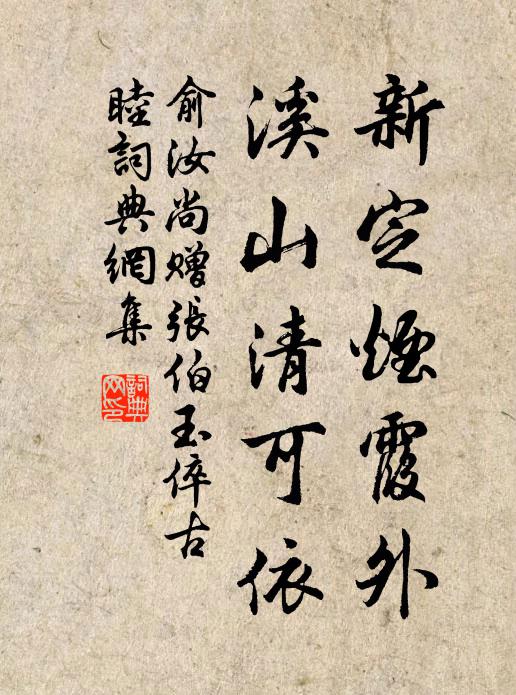 新定煙霞外
溪山清可依
俞汝尚贈張伯玉倅古
睦詞典網集
詞典
网印